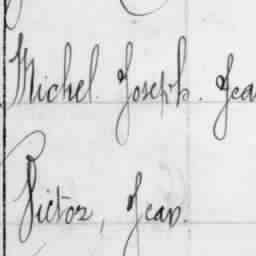 Michel. Joseph. Jea
Victor, Jean.